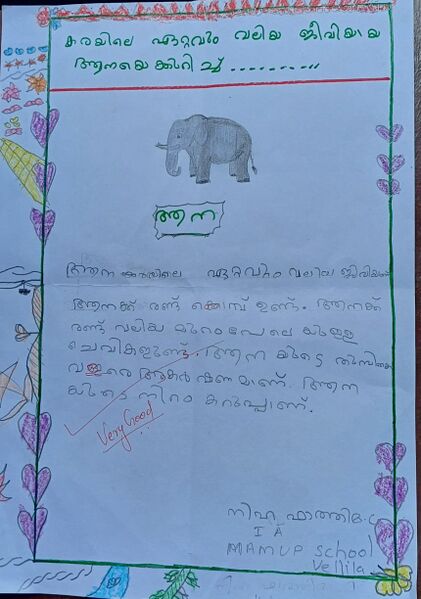 കരയിലെ ഏറ്റവും വലിയ ജീവിയായ
ആനയെക്കുറിച്ച്..........
ആന
ആന കരയിലെ ഏറ്റവും വലിയ ജീവിയാണ്
ആനക്ക് രണ്ട് കൊമ്പ് ഉണ്ട്. ആനക്ക്
രണ്ട് വലിയ മുറംപോലെ യുള്ള
ചെവികളുണ്ട്. ആന യുടെ തുമ്പിക്കൈ
വളരെ ആകർഷണമാണ്. ആന
യുടെ നിറം കറുപ്പാണ്.
Very Good
നിഹ ഫാത്തിമ.C
I A
MAMUP School
Vellila